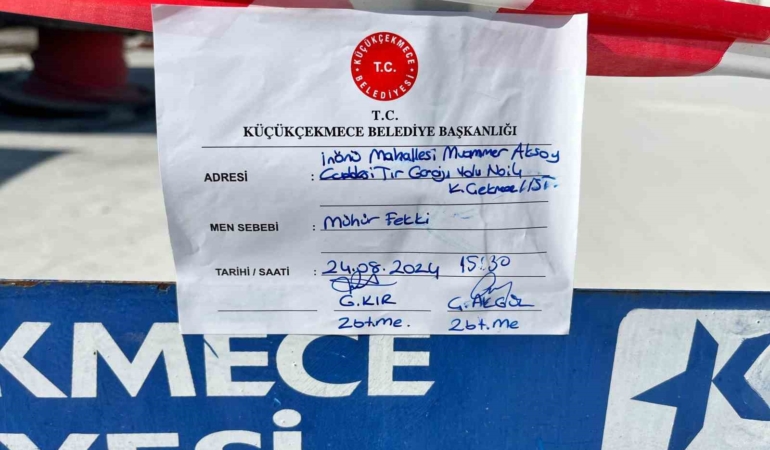 KÜÇÜKÇEKMECE
T.C.
BELEDİYESİ
T.C.
KÜÇÜKÇEKMECE BELEDİYE BAŞKANLIĞI
ADRESİ : İnönü Mahallesi Muammer Aksoy
Caddesi Tır Garajı Yolu No:4
K.Çekmece / İST.
MEN SEBEBİ : Mühür Fekki
TARİHİ / SAATİ : 24.08.2024 15:30
G.KIR G.AKGÜL
Zbt.me. Zbt.me
KMECE
YESİ